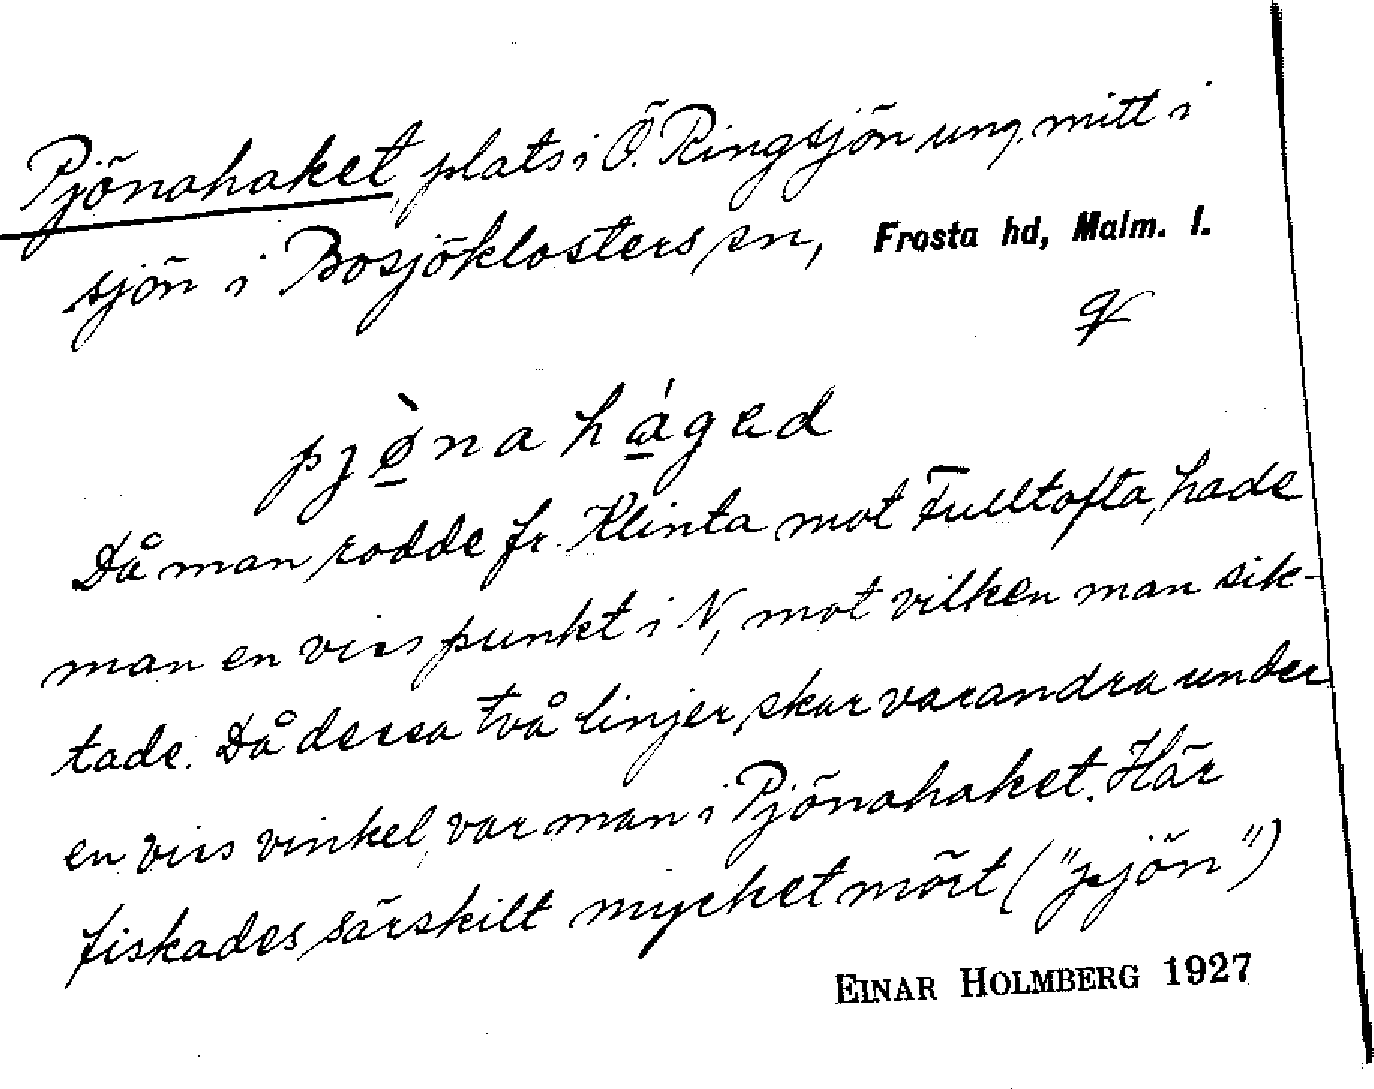 Pjönahaket, plats i Ö. Ringsjön ung. mitt i
sjön i Bosjöklosters sn, Frosta hd, Malm. l.
pjø̀nahágad
Då man rodde fr. Klinta mot Fulltofta, hade
man en viss punkt i N, mot vilken man sik-
tade. Då dessa två linjer skar varandra under
en viss vinkel, var man i Pjönahaket. Här
fiskades särskilt mycket mört ("pjön")
EINAR HOLMBERG 1927